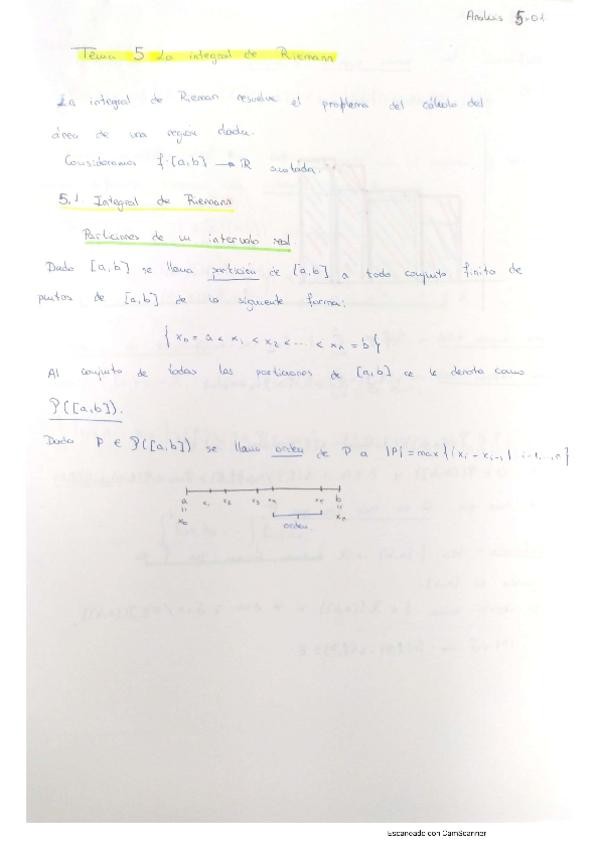 Análisis 5-01
Tema 5 La integral de Riemann
La integral de Rieman resuelve el problema del cálculo del
área de una región dada.
Consideramos f:[a,b] → ℝ acotada.
5.1. Integral de Riemann
Particiones de un intervalo real.
Dado [a,b] se llama partición de [a,b] a todo conjunto finito de
puntos de [a,b] de la siguiente forma:
{x₀ = a < x₁ < x₂ < ... < xₙ = b}
Al conjunto de todas las particiones de [a,b] se le denota como
P([a,b]).
Dada P ∈ P([a,b]) se llama orden de P a |P| = max{|xᵢ - xᵢ₋₁| i=1,...,n}
a x₁ x₂ x₃ x₄ b
x₀ orden xₙ
Escaneado con CamScanner